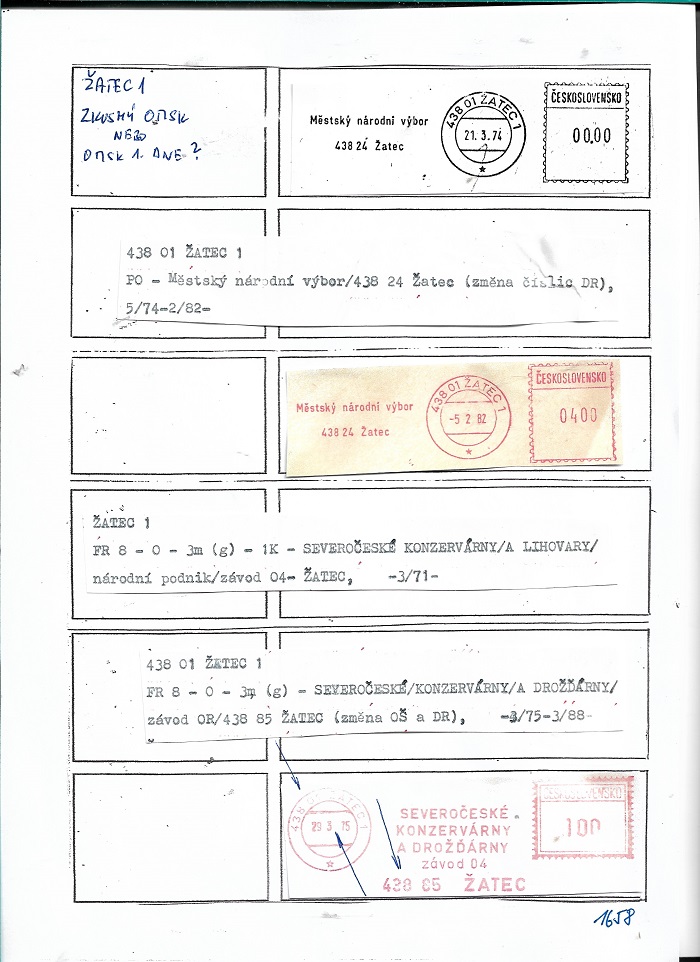 ŽATEC 1
ZKUSNÝ OTISK
NEBO
OTISK 1. DNE ?
Městský národní výbor
438 24 Žatec
438 01 ŽATEC 1
21.3.74
ČESKOSLOVENSKO
00.00
438 01 ŽATEC 1
PO - Městský národní výbor/438 24 Žatec (změna číslic DR),
5/74-2/82-
Městský národní výbor
438 24 Žatec
438 01 ŽATEC 1
-5 2 82
ČESKOSLOVENSKO
0400
ŽATEC 1
FR 8 - O - 3m (g) - 1K - SEVEROČESKÉ KONZERVÁRNY/A LIHOVARY/
národní podnik/závod 04- ŽATEC, -3/71-
438 01 ŽATEC 1
FR 8 - O - 3m (g) - SEVEROČESKÉ/KONZERVÁRNY/A DROŽĎÁRNY/
závod OR/438 85 ŽATEC (změna OŠ a DR), -3/75-3/88-
438 01 ŽATEC 1
29 3 75
SEVEROČESKÉ
KONZERVÁRNY
A DROŽĎÁRNY
závod 04
438 85 ŽATEC
ČESKOSLOVENSKO
100
1658